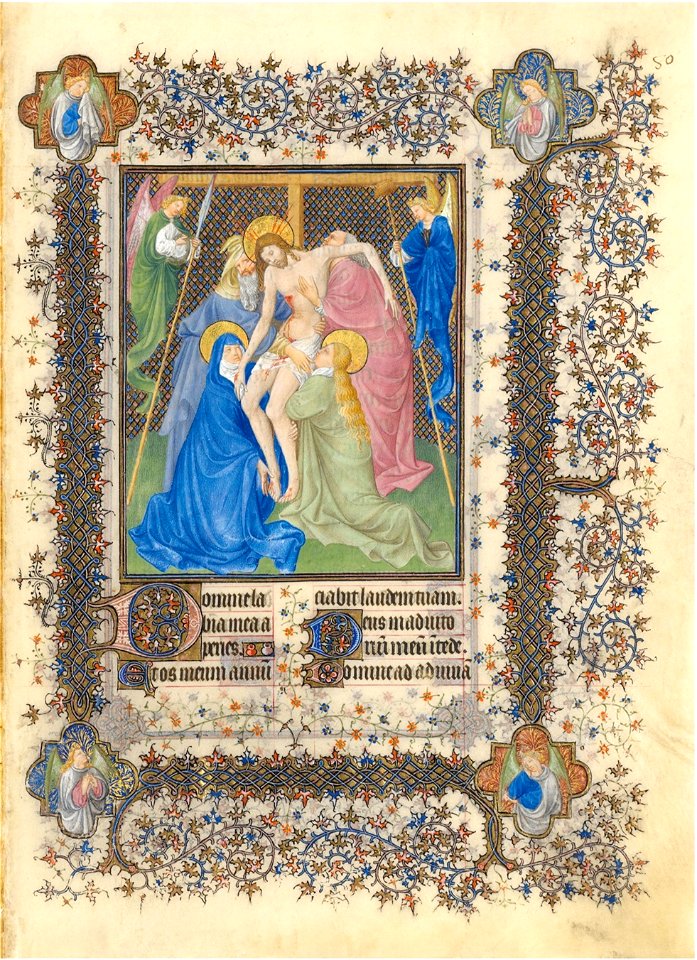 50
Domine la
bia mea a
peries.
Et os meum annū
ciabit laudem tuam.
Deus in adiuto
riū meū ītēde.
Domine ad adiuuā